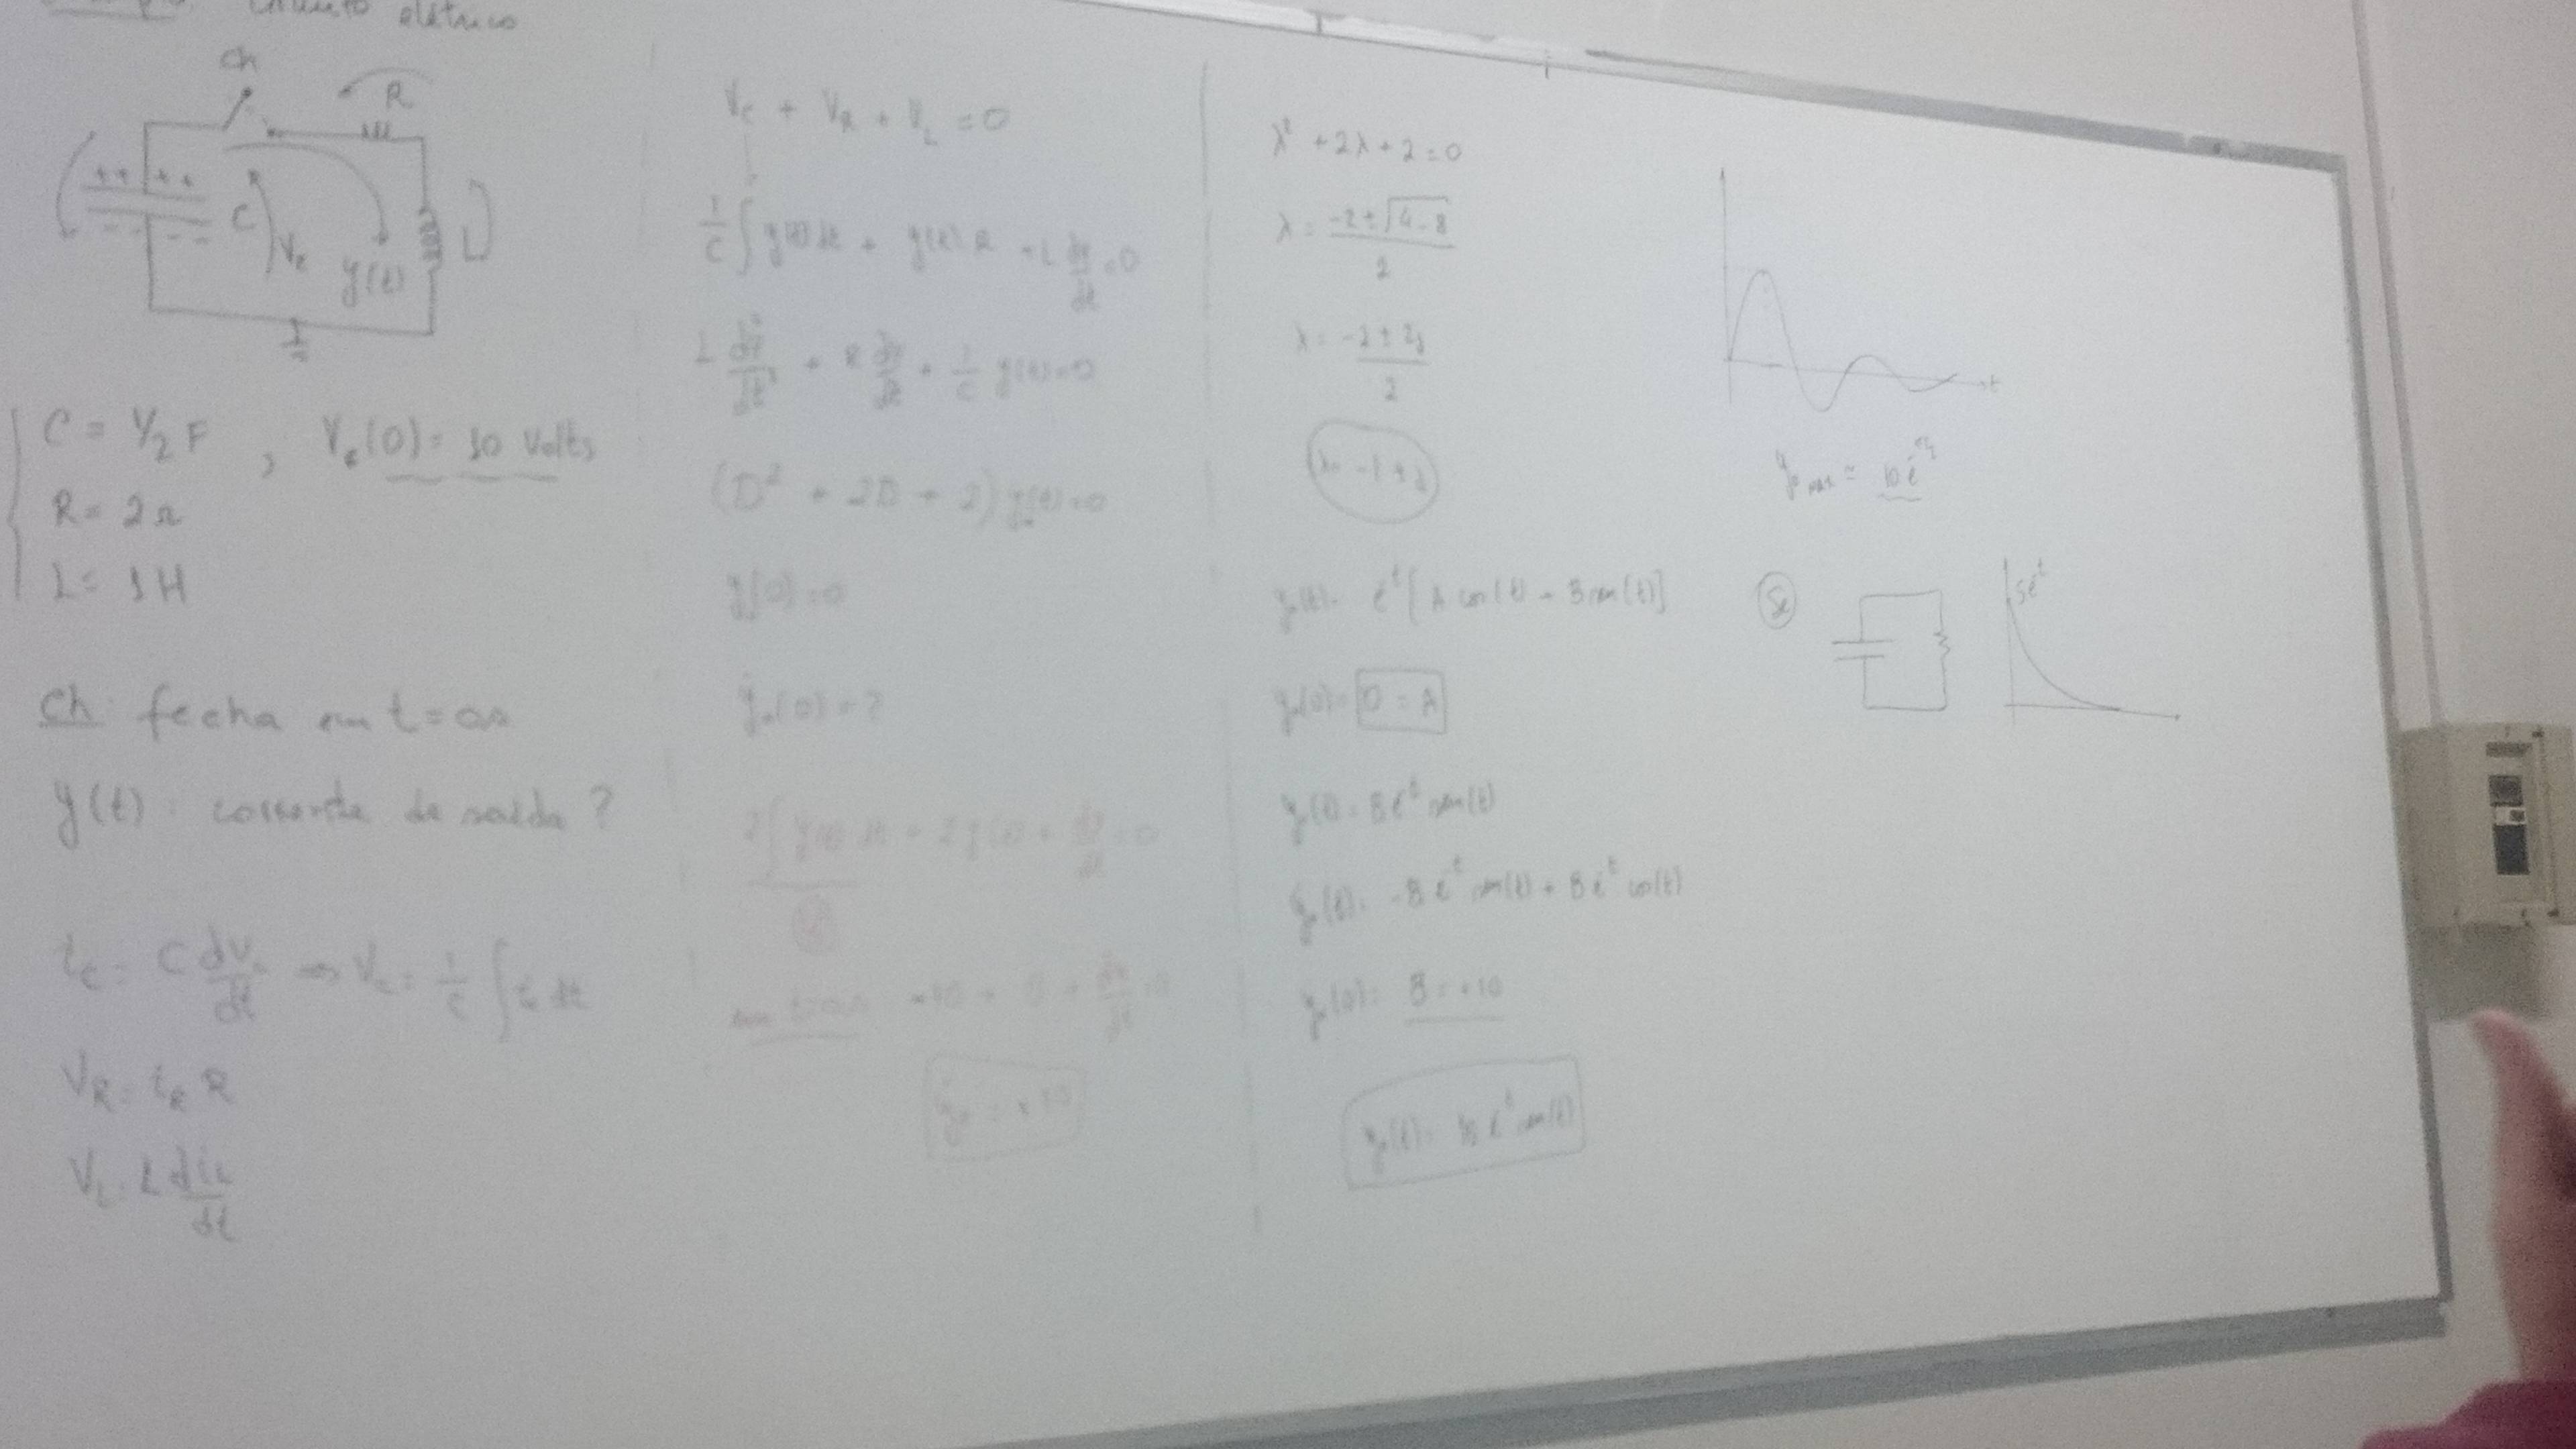 circuito elétrico
Ch
R
+ + + +
- - - -
C
Vc
y(t)
L
C = 1/2 F , Vc(0) = 10 Volts
R = 2 Ω
L = 1 H
Ch: fecha em t = 0s
y(t): corrente de saída ?
ic = C dVc/dt ⇒ Vc = 1/C ∫ ic dt
VR = iR R
VL = L diL/dt
Vc + VR + VL = 0
1/C ∫ y(t) dt + y(t) R + L dy/dt = 0
L d²y/dt² + R dy/dt + 1/C y(t) = 0
(D² + 2D + 2) y0(t) = 0
y0(0) = 0
ẏ0(0) = ?
2 ∫ y(t) dt + 2 y(t) + dy/dt = 0
-10 + 0 + dy/dt = 0
ẏ0 = +10
λ² + 2λ + 2 = 0
λ = (-2 ± √(4 - 8))/2
λ = (-2 ± 2j)/2
λ = -1 ± j
y0(t) = e^-t [A cos(t) + B sen(t)]
y0(0) = 0 = A
y0(t) = B e^-t sen(t)
ẏ0(t) = -B e^-t sen(t) + B e^-t cos(t)
ẏ0(0) = B = +10
y0(t) = 10 e^-t sen(t)
t
y0 max ≅ 10 e
Se
5e^-t